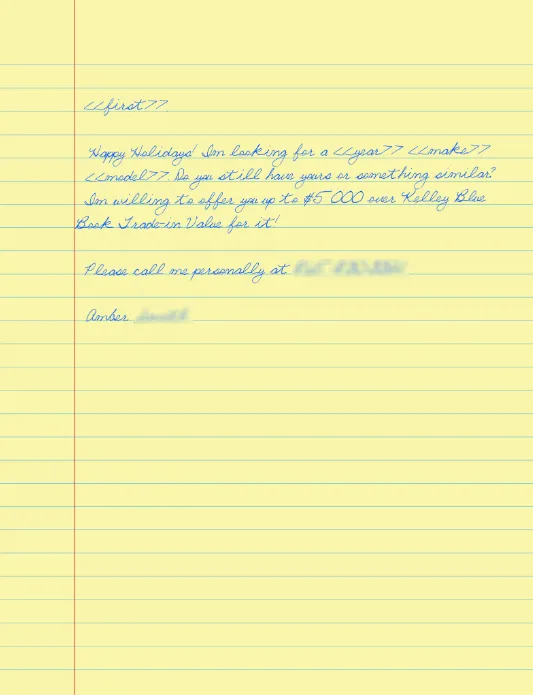 <<first>>
Happy Holidays! Im looking for a <<year>> <<make>>
<<model>>. Do you still have yours or something similar?
Im willing to offer you up to $5000 over Kelley Blue
Book Trade-in Value for it!
Please call me personally at
Amber